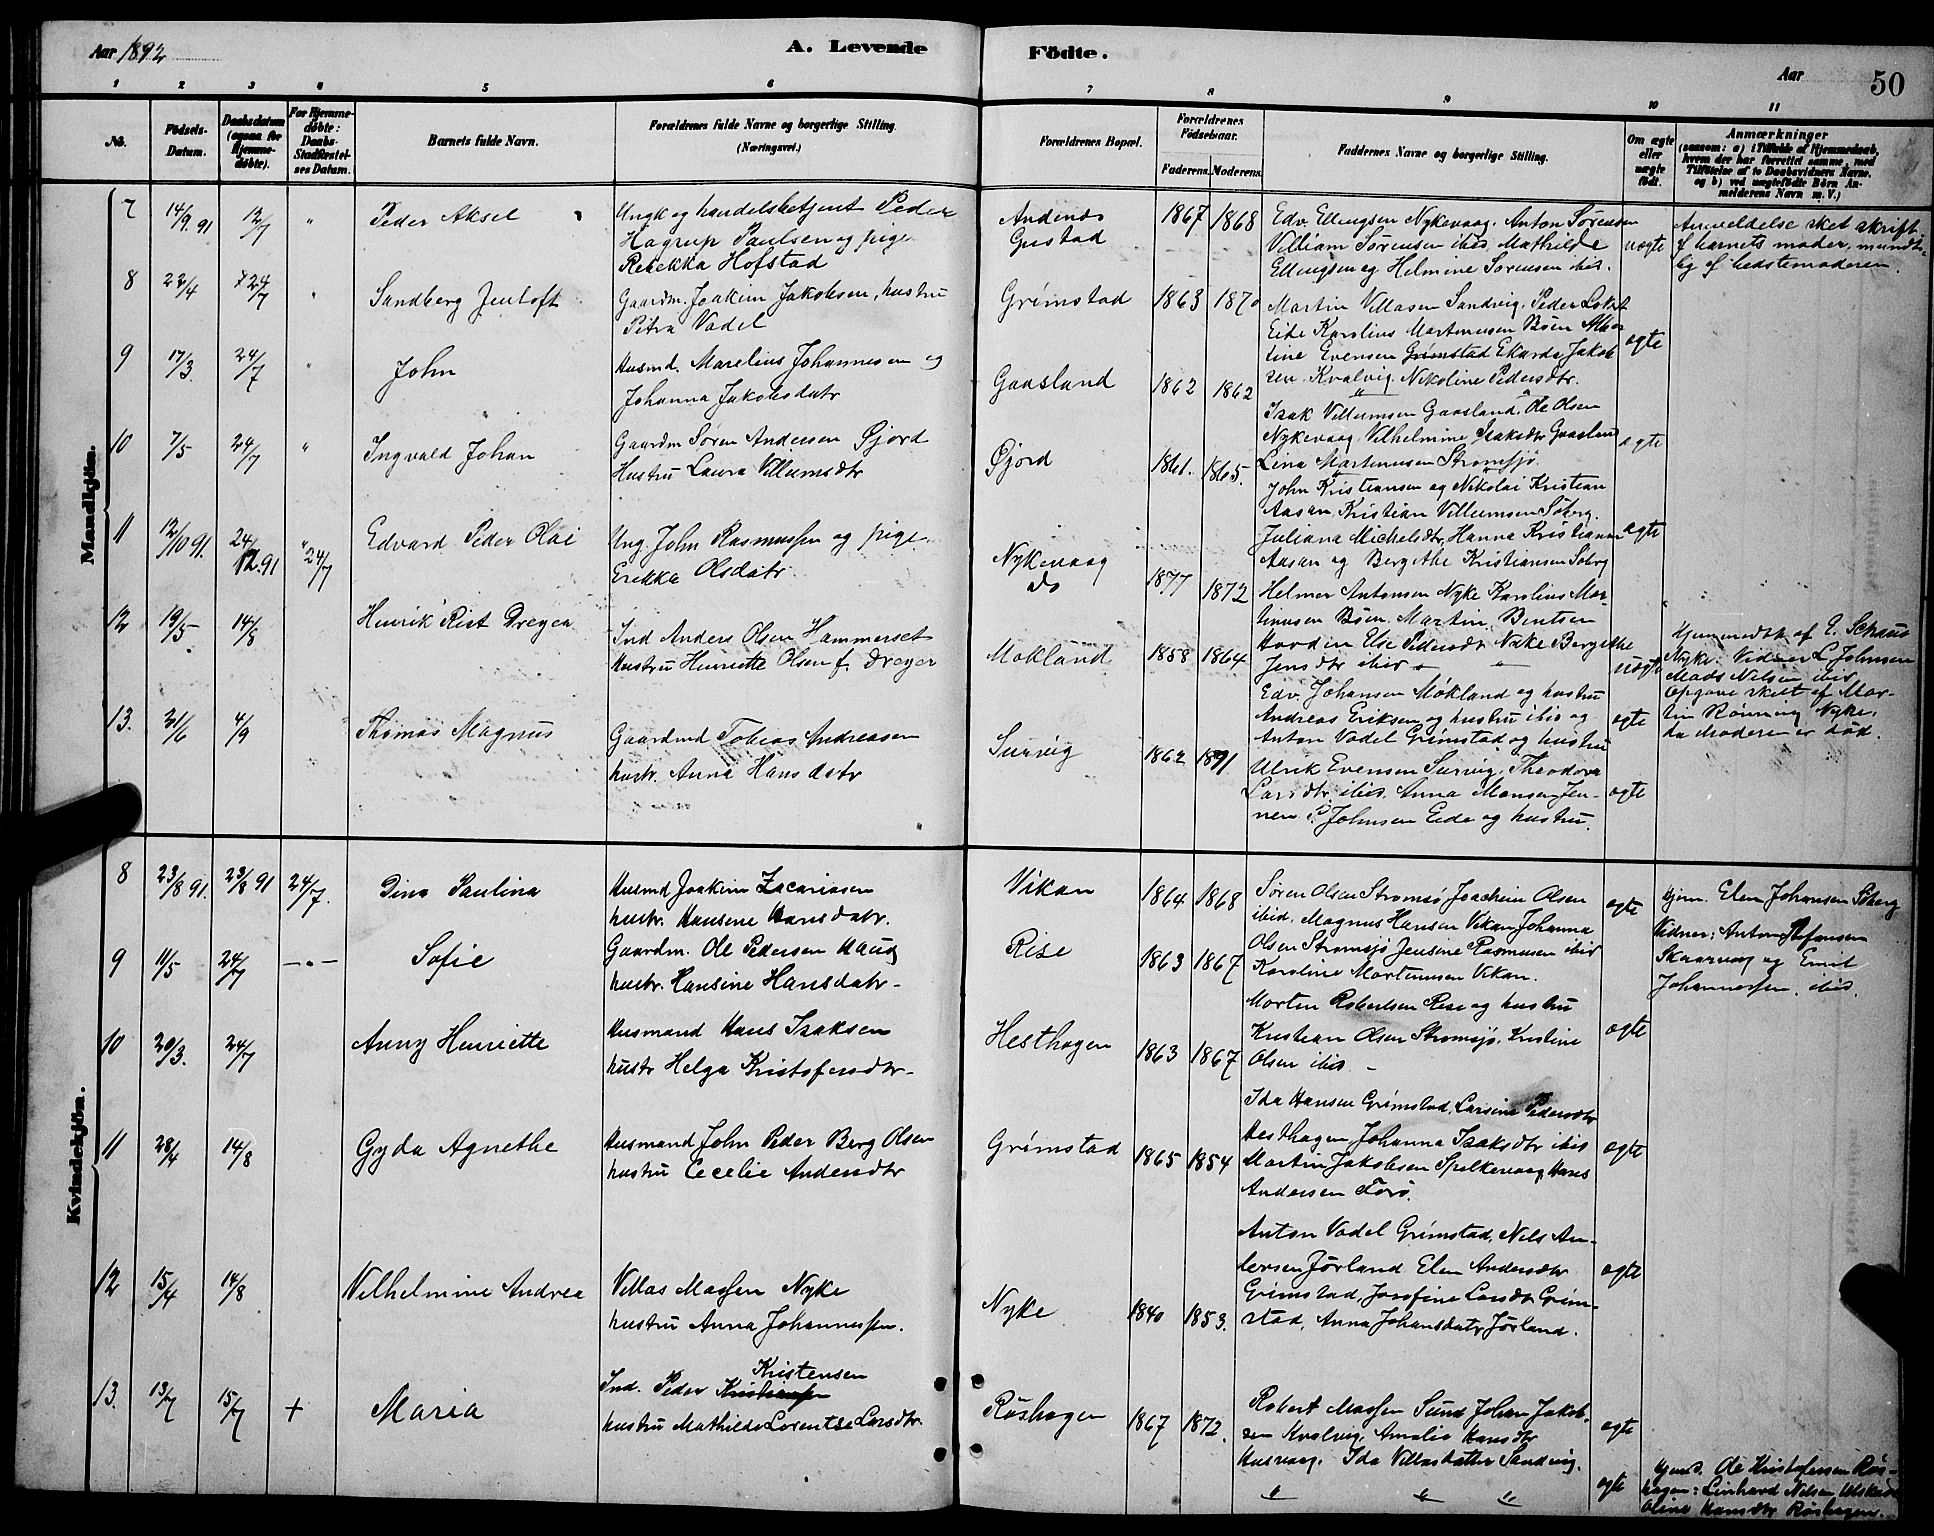 Aar 1892
A. Levende
Födte.
Aar
50
1 2 3 4 5 6 7 8 9 10 11
No.
Födsels-Datum.
Daabsdatum (ogsaa for Hjemme-döbte).
For Hjemme-döbte: Daabs-Stadfæstel-ses Datum.
Barnets fulde Navn.
Forældrenes fulde Navne og borgerlige Stilling.
(Næringsvei.)
Forældrenes Bopæl.
Forældrenes Födselsaar.
Faderens. Moderens.
Faddernes Navne og borgerlige Stilling.
Om ægte eller uægte födt.
Anmærkninger
(saasom: a) i Tilfælde af Hjemmedaab, hvem der har forrettet samme, med Tilföielse af to Daabsvidners Navne, og b) ved uægtefödte Börn An-melderens Navn m. V.)
Mandkjön.
7 14/9 91 12/7 " Peder Aksel
Ungk og handelsbetjent Peder
Hagrup Paulsen og pige
Rebekka Hofstad
Andenes
Gustad
1867 1868
Edv. Ellingsen Nykevaag. Anton Sørensen
Villiam Sørensen ibid. Mathilde
Ellingsen og Helmine Sørensen ibid.
uægte
Anmeldelse sket skrift.
af barnets moder, mundt-
lig af bedstemoderen.
8 22/4 24/7 " Sandberg Jentoft
Gaardm. Joakim Jakobsen, hustru
Petra Vadel
Grimstad 1863 1870
Martin Villasen Sandvig. Peder
Eide Karolius Martinusen Bøen
tine Evensen Grimstad Jakob
sen Kvalvig. Nikoline Pedersdtr.
ægte
9 17/3 24/7 " John
Husmd. Marelius Johannesen og
Johanna Jakobsdatr
Gaasland 1862 1862
Isak Villumsen Gaasland, Ole Olsen
Nykevaag, Vilhelmine Isaksdtr Gaasland
Lina Martinusen Strømsjø.
ægte
10 7/5 24/7 " Ingvald Johan
Gaardm Søren Andersen Fjord
Hustru Laura Villumsdtr
Fjord 1861. 1865.
John Kristiansen og Nikolai Kristian
Aasan. Kristian Villumsen Søberg.
Juliana Michelsdtr, Hanna Kristiansen
Aasan og Bergithe Kristiansen Søberg
ægte
11 12/10 91. 24/12.91 24/7 Edvard Peder Olai
Ung. John Rasmussen og pige
Erikka Olsdatr
Nykevaag
do
1877 1872
Helmer Antonsen Nyke Karolius Mar-
tinusen Bøen. Martin Bentsen
Else Pedersdtr Nyke Bergithe
Jensdtr ibid
uægte
Hjemmedbt af E. Schaus
Nyke. Vidner L. Johnsen
Mads Nilsen ibid.
Opgave sket af Mar-
tin Rønning Nyke,
da Moderen er død.
12 19/5 14/8 Henrik Rist Dreyer
Ind Anders Olsen Hammerset
Hustru Henriette Olsen f. Dreyer
Mokland 1858 1864
Edv. Johansen Møkland og hustru
Andreas Eriksen og hustru ibid og
Anton Vadel Grimstad og hustru
ægte
13. 21/6 4/9 Thomas Magnus
Gaardmd Tobias Andreasen
hustr. Anna Hansdatr
Survig 1862 1891
Ulrik Evensen Survig, Theodora
Larsdtr ibid. Anna Monsen Jen-
nes. P. Johnsen Eide og hustru.
ægte
Kvindekjön.
8 23/8 91. 23/8 91 24/7. Dina Paulina
Husmd Joakim Zacariasen
hustr. Hansine Hansdatr.
Vikan 1864 1868
Søren Olsen Strømsø Joachim Olsen
ibid. Magnus Hansen Vikan Johanna
Olsen Strømsjø Jensine Rasmusen ibid
Karoline Martinusen Vikan.
ægte
Hjem. Elen Johansen Søberg
Vidner: Anton Stefansen
Skaarvaag og Emil
Johannessen. ibid.
9 10/5 24/7 — " — Sofie
Gaardm. Ole Pedersen Haug
hustr. Hansine Hansdatr
Rise 1863 1867
Morten Robertsen Rise og hustru
Kristian Olsen Strømsjø. Kristine
Olsen ibid.
ægte
10 20/3. 24/7 Anny Henriette
Husmand Hans Isaksen
hustr Helga Kristofersdtr
Hesthagen 1863 1867
Ida Hansen Grimstad, Larsine Pedersdtr
Hesthagen Johanna Isaksdtr ibid
Martin Jakobsen Spelkevaag, Hans
Andersen Forø.
ægte
11 28/4 14/8 Gyda Agnethe
Husmand John Peder Berg Olsen
hustru Cecelie Andersdtr
Grimstad 1865 1854
Anton Vadel Grimstad, Nils An-
dersen Jørland Elen Andersdtr
Grimstad, Josefine Larsdtr Grim-
stad, Anna Johansdatr Jørland.
ægte
12 15/4 14/8 Vilhelmine Andrea
Villas Massen Nyke
hustru Anna Johannessen.
Nyke 1840 1853.
Robert Massen Sund Johan Jakob-
sen Kvalvig, Amalie Hansdtr
Husvaag. Ida Villasdatter Sandvig.
ægte
13. 13/7 15/7 + Maria
Ind. Peder Kristensen
hustru Mathilde Lorentse Larsdtr.
Røshagen 1867 1872.
" " "
ægte
Hjemd. Ole Kristofersen Røs-
hagen: Linhard Nilsen
Oline Hansdtr Røshagen.